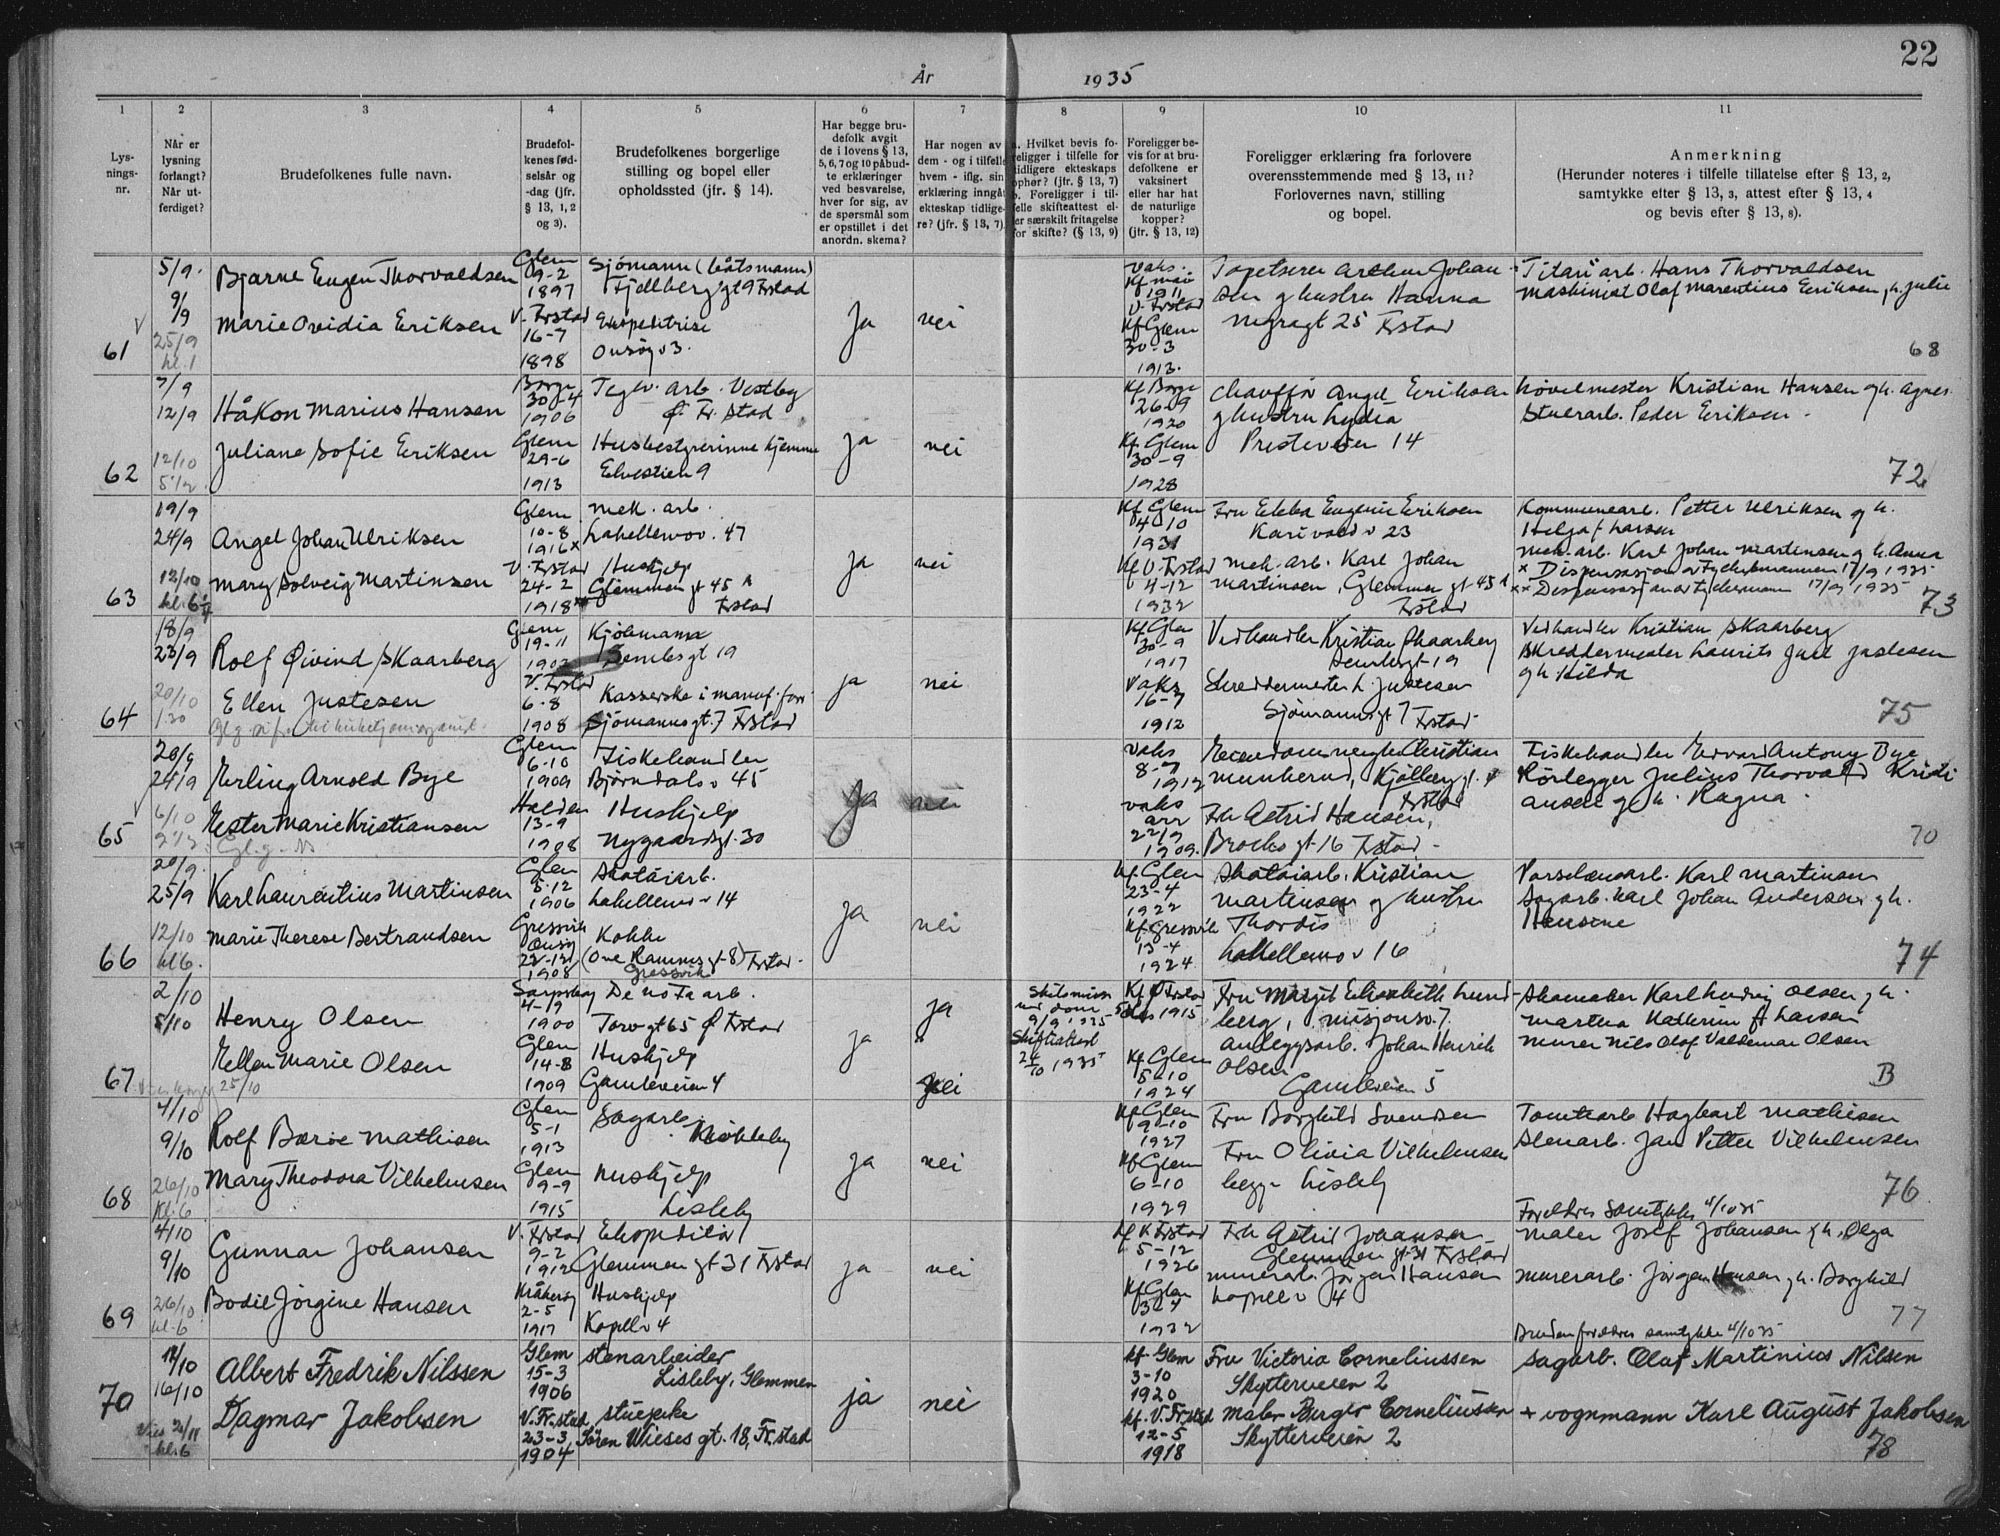 22
År 1935
1
2
3
4
5
6
7
8
9
10
11
Lys-
nings-
nr.
Når er
lysning
forlangt?
Når ut-
ferdiget?
Brudefolkenes fulle navn.
Brudefol-
kenes fød-
selsår og
-dag (jfr.
§ 13, 1, 2
og 3).
Brudefolkenes borgerlige
stilling og bopel eller
opholdssted (jfr. § 14).
Har begge bru-
defolk avgit
de i lovens § 13,
5, 6, 7 og 10 påbud-
te erklæringer
ved besvarelse,
hver for sig, av
de spørsmål som
er opstillet i det
anordn. skema?
Har nogen av
dem - og i tilfelle
hvem - iflg. sin
erklæring inngåt
ekteskap tidlige-
re? (jfr. § 13, 7).
a. Hvilket bevis fo-
religger i tilfelle for
tidligere ekteskaps
ophør? (jfr. § 13, 7)
b. Foreligger i til-
felle skifteattest el-
ler særskilt fritagelse
for skifte? (§ 13, 9)
Foreligger be-
vis for at bru-
defolkene er
vaksinert
eller har hat
de naturlige
kopper?
(jfr. § 13, 12)
Foreligger erklæring fra forlovere
overensstemmende med § 13, 11?
Forlovernes navn, stilling
og bopel.
Anmerkning
(Herunder noteres i tilfelle tillatelse efter § 13, 2,
samtykke efter § 13, 3, attest efter § 13, 4
og bevis efter § 13, 8).
61
5/9.
9/9
25/9
kl. 1
Bjarne Eugen Thorvaldsen
Marie Ovidia Eriksen
Glem
9-2
1897
V. Frstad
16-7
1898
Sjømann (båtsmann)
Fjellberg gt 9 Frstad
Ekspeditrise
Onsøy v 3.
Ja
nei
Vaks.
1911
V. Frstad
Kf Glem
30-3
1913.
Tapetserer Arthur Johan-
sen g hustru Hanna
Nygaagt 25 Frstad
Titan arb. Hans Thorvaldsen
Maskinist Olaf Marentius Eriksen g h. Julie
68
62
7/9
12/9
12/10
Håkon Marius Hansen
Juliane Sofie Eriksen
Borge
30-4
1906
Glem
29-6
1913
Teglv. arb. Vestby
Ø. Fr. stad
Husbestyrerinne hjemme
Elvestien 9
ja
nei
Kf Borge
26-9
1920
Kf. Glem
30-9
1928
Chauffør Angel Eeriksen
g hustru Lydia
Presteveien 14
Høvelmester Kristian Hansen g h. Agnes
Stuerarb. Peder Eriksen.
72
63
19/9
24/9
12/10
Angel Johan Ulriksen
Mary Solveig Martinsen
Glem
10-8
1916 x
V. Frstad
24-2
1918 xx
mek. arb.
Lahellemov. 47
Hushjelp
Glemmen gt 45 A
Frstad
Ja
nei
Kf Glem
4-10
1931
Kf V. Frstad
4-12
1932
Fru Ebba Eugenie Eriksen
Karivold v 23
mek. arb. Karl Johan
Martinsen, Glemmen gt 45 A
Frstad
Kommunearb. Petter Ulriksen g h.
Helga f Larsen
mek. arb. Karl Johan Martinsen g h. Anna
x Dispensasjon av Fylkesmannen 17/9 1935
xx Dispensasjon av Fylkesmann 17/9 1935
73
64
18/9
23/9
20/10
1.30
Rolf Øivind Skaarberg
Ellen Justesen
Glem
19-11
1902
V. Frstad
6-8
1908
Kjøbmann
Sembsgt 19
Kasserske i manuf. forr
Sjømannsgt. 7 Frstad
ja
nei
Kf Glem
30-9
1917
Vaks
16-7
1912
Vedhandler Kristian Skaarberg
Sembsgt 19
Skreddermester L. Justesen
Sjømannsgt 7 Frstad.
Vedhandler Kristian Skaarberg
Skreddermester Laurits Juel Justesen
g h Hilda
75
65
20/9
24/9
6/10
Erling Arnold Bye
Ester Marie Kristiansen
Glem
6-10
1909
Halden
13-9
1908
Fiskehandler
Bjørndals v 45
Hushjelp
Nygaardsgt. 30
Ja
nei
Vaks
8-7
1912
Vaks
arr
22/9
1909.
Fr Astrid Hansen,
Brochs gt 16 Frstad.
Fiskehandler Edvard Antony Bye
Rørlegger Julius Thorvald Kristi
ansen g h. Ragna.
70
66
20/9.
25/9
12/10
kl 6.
Karl Laurentius Martinsen
Marie Therese Bertrandsen
Glem
5-12
1906
Gressvik
Onsøy
22-12
1908
Skotøiarb.
Lahellemo v 14
Kokke
Gressvik
Ja
nei
Kf. Glem
23-4
1922
Kf. Gressvik
13-4
1924
Skotøiarb. Kristian
Martinsen og hustru
Thordis
Lahellemo v 16
Sagarb. Karl Johan Andersen g h.
74
67
2/10
5/10
25/10
Henry Olsen
Ellen Marie Olsen
Sarpsborg
4-19
1900
Glem
14-8
1909
De no Fa arb.
Torvgt 65 Ø Frstad
Hushjelp
Gamleveien 4
ja
ja
nei
9/9 1935
Skifteattest
2/10 1935
Kf Ø Frstad
1915
Kf. Glem
5-10
1924
Fru Margit Elisabeth Lund-
berg, Misjonsv. 7.
anleggsarb. Johan Henrik
Olsen
Gamleveien 5
Skomaker Karl Ludvig Olsen g h.
Martha Kathrine f Larsen
murer Nils Olaf Valdemar Olsen
B
68
4/10
9/10
26/10
Kl. 6
Rolf Børre Mathisen
Mary Theodora Vilhelmsen
Glem
5-1
1913
Glem
9-9
1915
Sagarb.
Nøkleby
Hushjelp
Lisleby
Ja
nei
Kf Glem
9-10
1927
Kf Glem
6-10
1929
Fru Borghild Svendsen
Fru Olivia Vilhelmsen
begge Lisleby
Tomtearb Hagbart Mathisen
Stenarb. Jan Petter Vilhelmsen
Foreldres Samtykke 4/10 35
76
69
4/10
9/10
26/10
kl. 6
Gunnar Johansen
Bodil Jørgine Hansen
V. Frstad
9-2
1912
Kråkerøy
2-5
1917
Ekspeditør
Glemmen gt 31 Frstad
Hushjelp
Kapellv 4
ja
nei
Kf V. Frstad
5-12
1926
Kf Glem
1932
Fru Astrid Johansen
Glemmen gt. 31 Frstad
murerarb. Jørgen Hansen
Kapell v 4
Maler Josef Johansen g h. Olga
Murerarb. Jørgen Hansen g h. Borghild
Brudens foreldres samtykke 4/10 35
77
70
12/10
16/10
Vies 2/11
kl. 6
Albert Fredrik Nilssen
Dagmar Jakobsen
Glem
15-3
1906
V. Fr.stad
23-3
1904
stenarbeider
Lisleby, Glemmen
stuepike
Søren Wieses gt. 18, Fr.stad
ja
nei
kf. Glem
3-10
1920
kf. V. Fr.stad
12-5
1918
Fru Victoria Corneliussen
Skytterveien 2
Maler Birger Corneliussen
Skytterveien 2
sagarb. Olaf Martinius Nilsen
+ vognmann Karl August Jakobsen
78